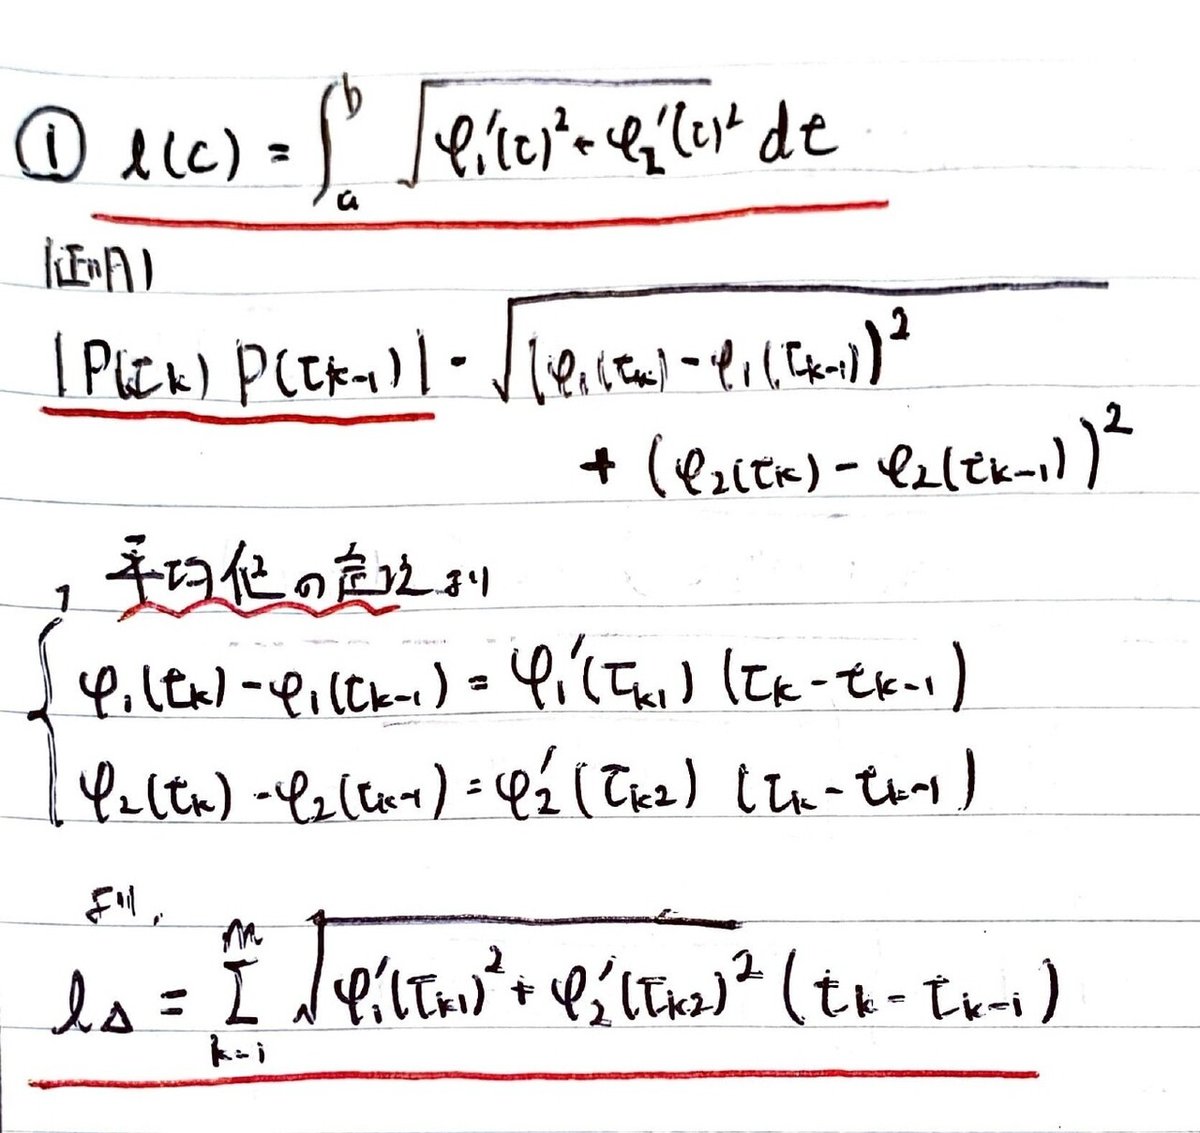 ① l(c) = ∫_a^b √(φ₁'(t)² + φ₂'(t)²) dt
(証明)
|P(t_k) P(t_{k-1})| = √((φ₁(t_k) - φ₁(t_{k-1}))²
+ (φ₂(t_k) - φ₂(t_{k-1}))²
平均値の定理より
φ₁(t_k) - φ₁(t_{k-1}) = φ₁'(τ_{k1}) (t_k - t_{k-1})
φ₂(t_k) - φ₂(t_{k-1}) = φ₂'(τ_{k2}) (t_k - t_{k-1})
より、
l_Δ = Σ_{k=1}^{m} √(φ₁'(τ_{k1})² + φ₂'(τ_{k2})²) (t_k - t_{k-1})